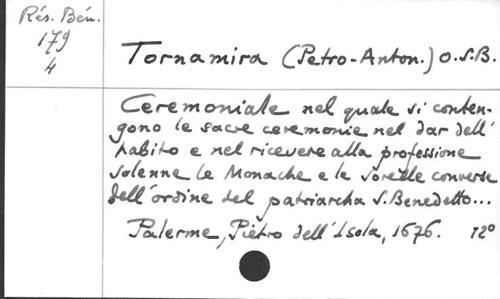 Rés. Bén.
179
4
Tornamira (Petro-Anton.) O.S.B.
Ceremoniale nel quale si conten-
gono le sacre ceremonie nel dar dell'
habito e nel ricevere alla professione
solenne le Monache e le sorelle converse
dell'ordine del patriarcha S. Benedetto...
Palerme, Pietro dell'Isola, 1676. 12°